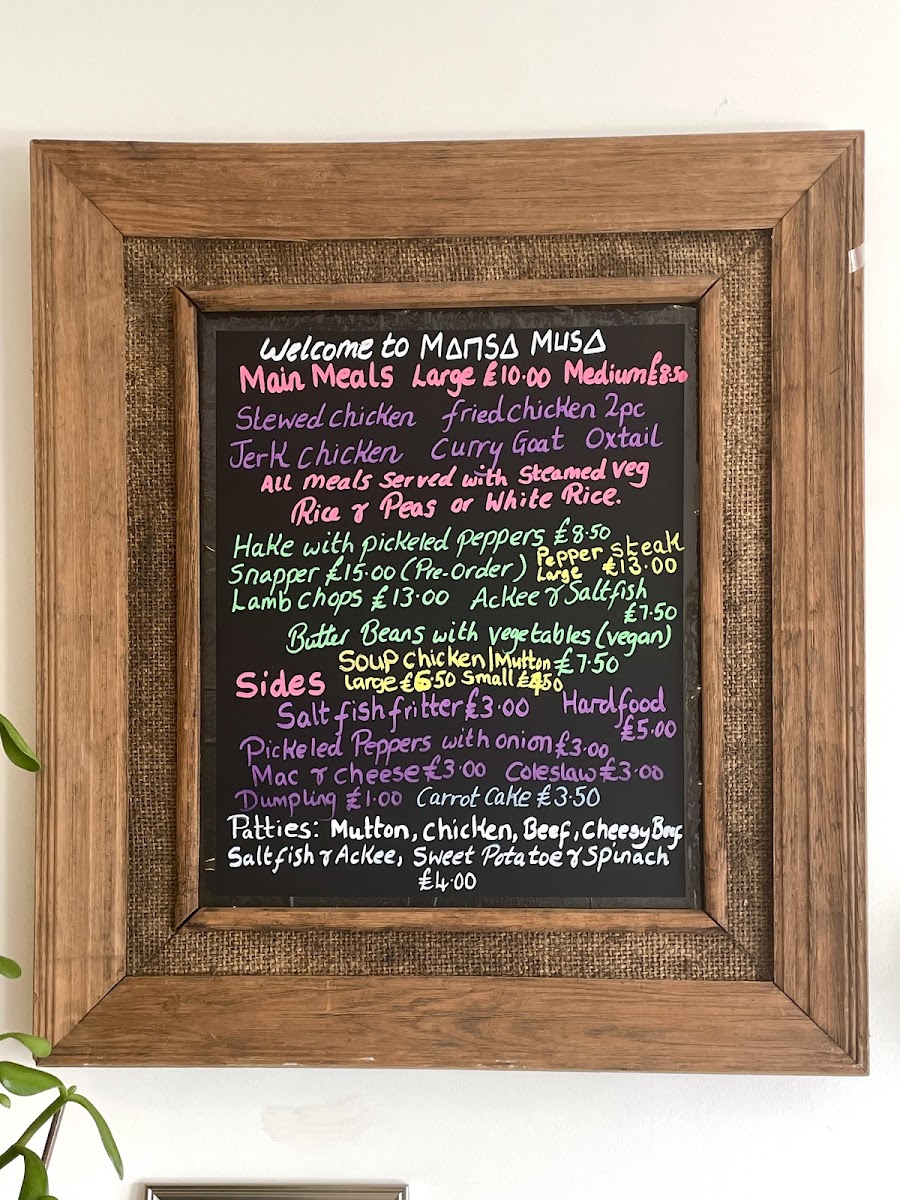 Welcome to MANSA MUSA
Main Meals Large £10.00 Medium £8.50
Stewed chicken fried chicken 2pc
Jerk chicken Curry Goat Oxtail
All meals served with Steamed veg
Rice & Peas or White Rice.
Hake with pickeled peppers £8.50
Pepper steak
Snapper £15.00 (Pre-Order) Large £13.00
Lamb chops £13.00 Ackee & Saltfish
£7.50
Butter Beans with vegetables (vegan)
Soup chicken/Mutton £7.50
Sides Large £6.50 Small £4.50
Salt fish fritter £3.00 Hard food
£5.00
Pickeled Peppers with onion £3.00
Mac & cheese £3.00 Coleslaw £3.00
Dumpling £1.00 Carrot Cake £3.50
Patties: Mutton, chicken, Beef, Cheesy Beef
Saltfish & Ackee, Sweet Potatoe & Spinach
£4.00